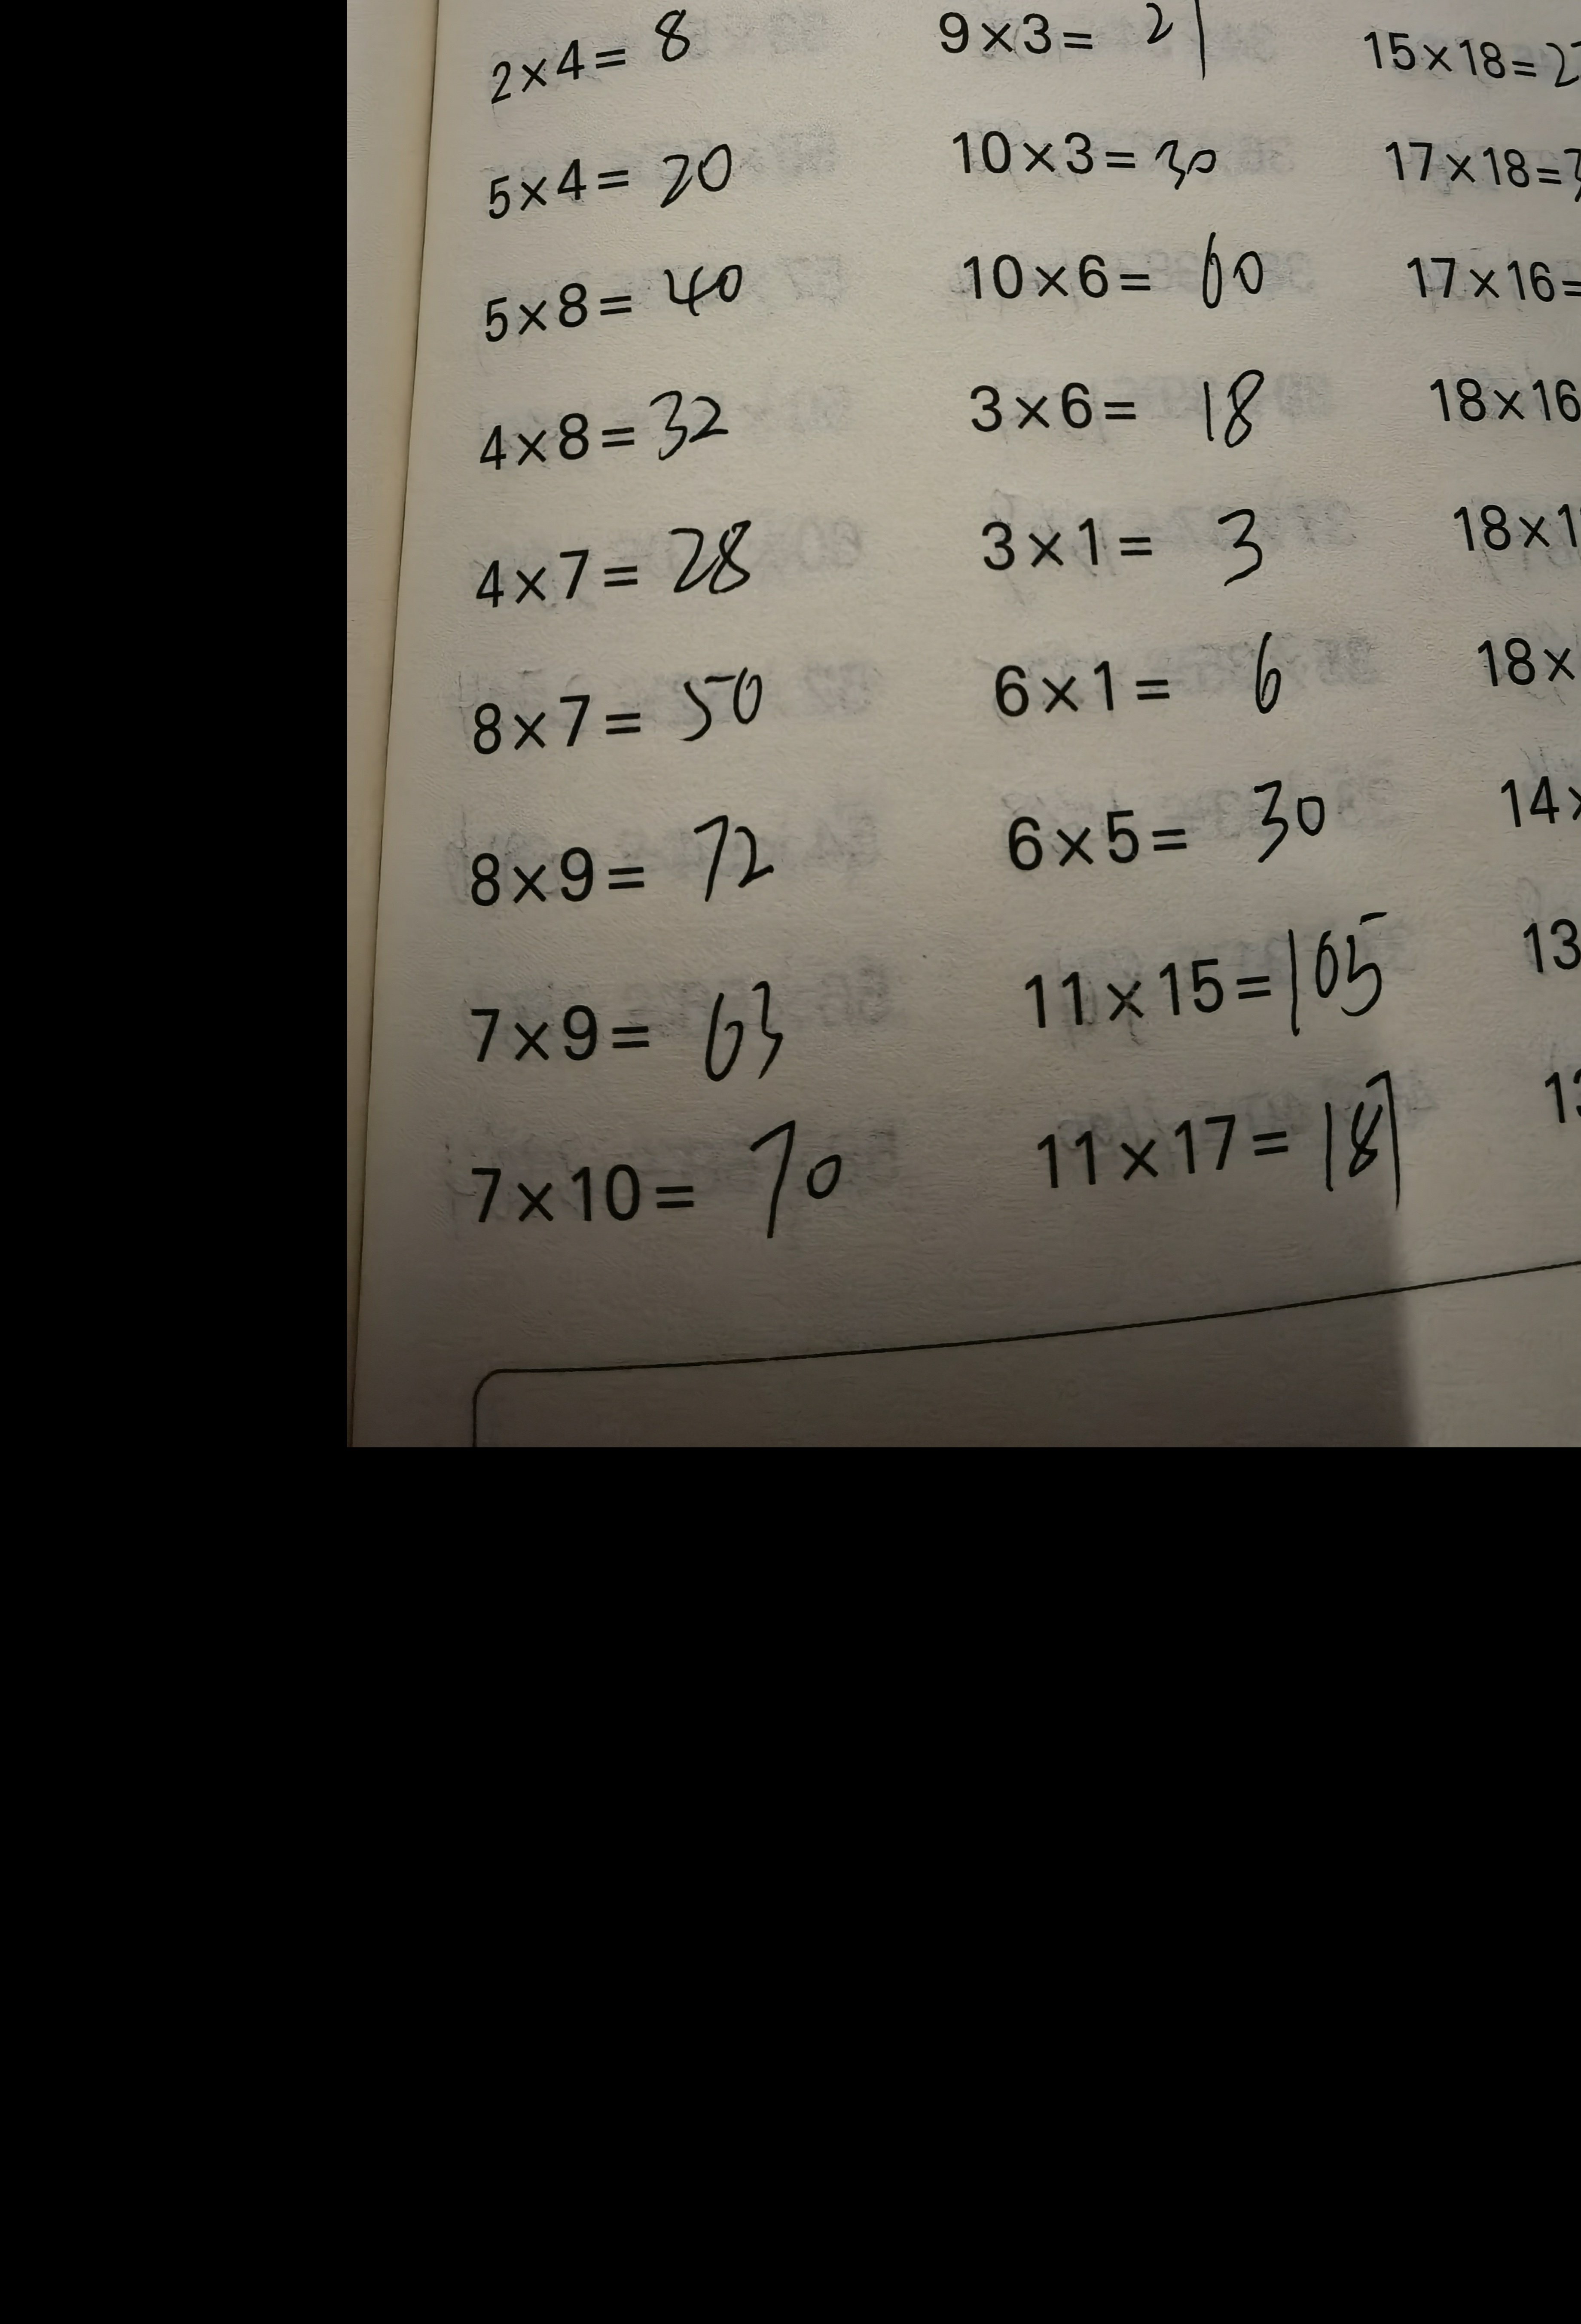 2×4= 8
5×4= 20
5×8= 40
4×8= 32
4×7= 28
8×7= 50
8×9= 72
7×9= 63
7×10= 70
9×3= 21
10×3= 30
10×6= 60
3×6= 18
3×1= 3
6×1= 6
6×5= 30
11×15= 105
11×17= 187
15×18= 2
17×18=
17×16=
18×16
18×1
18×
14×
13